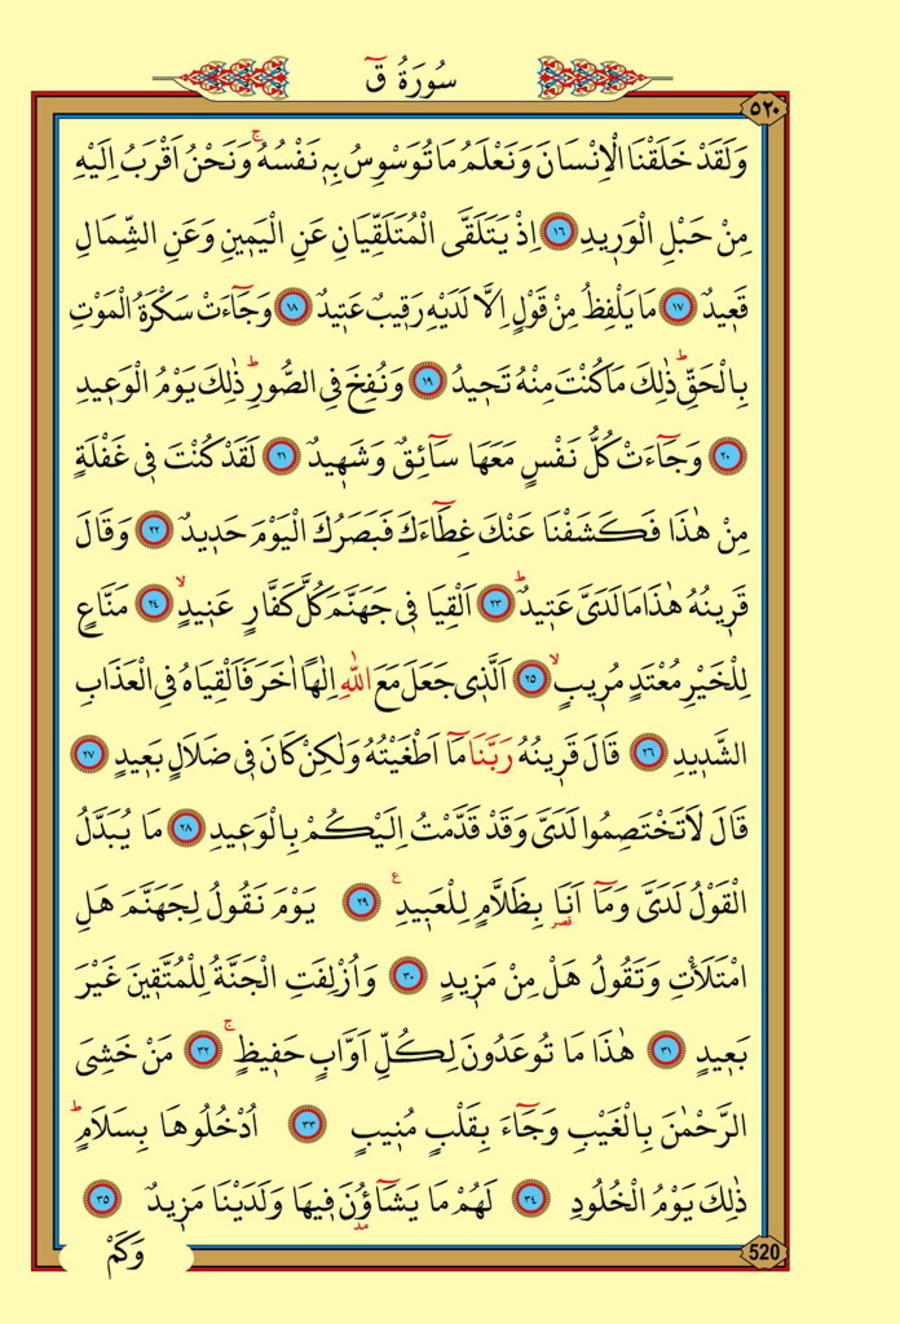 سُورَةُ قٓ
٥٢٠
وَلَقَدْ خَلَقْنَا الْاِنْسَانَ وَنَعْلَمُ مَا تُوَسْوِسُ بِه۪ نَفْسُهُۚ وَنَحْنُ اَقْرَبُ اِلَيْهِ
مِنْ حَبْلِ الْوَر۪يدِ ١٦ اِذْ يَتَلَقَّى الْمُتَلَقِّيَانِ عَنِ الْيَم۪ينِ وَعَنِ الشِّمَالِ
قَع۪يدٌ ١٧ مَا يَلْفِظُ مِنْ قَوْلٍ اِلَّا لَدَيْهِ رَق۪يبٌ عَت۪يدٌ ١٨ وَجَٓاءَتْ سَكْرَةُ الْمَوْتِ
بِالْحَقِّۜ ذٰلِكَ مَا كُنْتَ مِنْهُ تَح۪يدُ ١٩ وَنُفِخَ فِي الصُّورِۜ ذٰلِكَ يَوْمُ الْوَع۪يدِ
٢٠ وَجَٓاءَتْ كُلُّ نَفْسٍ مَعَهَا سَٓائِقٌ وَشَه۪يدٌ ٢١ لَقَدْ كُنْتَ ف۪ي غَفْلَةٍ
مِنْ هٰذَا فَكَشَفْنَا عَنْكَ غِطَٓاءَكَ فَبَصَرُكَ الْيَوْمَ حَد۪يدٌ ٢٢ وَقَالَ
قَر۪ينُهُ هٰذَا مَا لَدَيَّ عَت۪يدٌۜ ٢٣ اَلْقِيَا ف۪ي جَهَنَّمَ كُلَّ كَفَّارٍ عَن۪يدٍۙ ٢٤ مَنَّاعٍ
لِلْخَيْرِ مُعْتَدٍ مُر۪يبٍۙ ٢٥ اَلَّذ۪ي جَعَلَ مَعَ اللّٰهِ اِلٰهًا اٰخَرَ فَاَلْقِيَاهُ فِي الْعَذَابِ
الشَّد۪يدِ ٢٦ قَالَ قَر۪ينُهُ رَبَّنَا مَٓا اَطْغَيْتُهُ وَلٰكِنْ كَانَ ف۪ي ضَلَالٍ بَع۪يدٍ ٢٧
قَالَ لَا تَخْتَصِمُوا لَدَيَّ وَقَدْ قَدَّمْتُ اِلَيْكُمْ بِالْوَع۪يدِ ٢٨ مَا يُبَدَّلُ
الْقَوْلُ لَدَيَّ وَمَٓا اَنَا۬ بِظَلَّامٍ لِلْعَب۪يدِ ع ٢٩ يَوْمَ نَقُولُ لِجَهَنَّمَ هَلِ
قصر
امْتَلَأْتِ وَتَقُولُ هَلْ مِنْ مَز۪يدٍ ٣٠ وَاُزْلِفَتِ الْجَنَّةُ لِلْمُتَّق۪ينَ غَيْرَ
بَع۪يدٍ ٣١ هٰذَا مَا تُوعَدُونَ لِكُلِّ اَوَّابٍ حَف۪يظٍۚ ٣٢ مَنْ خَشِيَ
الرَّحْمٰنَ بِالْغَيْبِ وَجَٓاءَ بِقَلْبٍ مُن۪يبٍ ٣٣ اُدْخُلُوهَا بِسَلَامٍۜ
ذٰلِكَ يَوْمُ الْخُلُودِ ٣٤ لَهُمْ مَا يَشَٓاؤُ۫نَ ف۪يهَا وَلَدَيْنَا مَز۪يدٌ ٣٥
مد
وَكَمْ
520